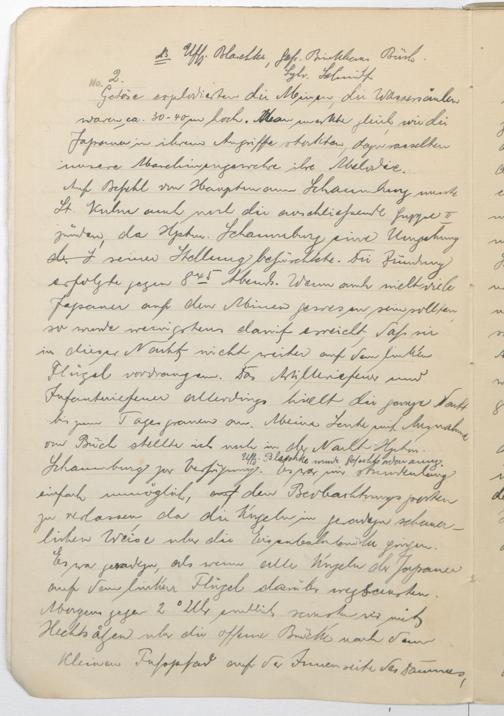 Uffz. Blaschke, Gefr. Brinkhaus Büch.
Schmidt
No. 2.
Getöse explodierten die Minen, die Wassersäulen
waren ca. 30-40 m hoch. Man merkte gleich, wie die
Japaner in ihrem Angriffe stockten, dazu rasselten
unsere Maschinengewehre ihre Melodie.
Auf Befehl von Hauptmann Schaumburg musste
Lt. Kuhn auch noch die anschliessende Gruppe II
zünden, da Hptm. Schaumburg eine Umgehung
seiner Stellung befürchtete. Die Zündung
erfolgte gegen 8 45 Abends. Wenn auch nicht viele
Japaner auf den Minen gewesen sein sollten,
so wurde wenigstens damit erreicht, dass sie
in dieser Nacht nicht weiter auf dem linken
Flügel vordrangen. Das Artilleriefeuer und
Infanteriefeuer allerdings hielt die ganze Nacht
bis zum Tagesgrauen an. Meine Leute mit Ausnahme
von Büch stellte ich noch in der Nacht Hptm.
Uffz. Blaschke wurde
Schaumburg zur Verfügung. Es war uns stundenlang
einfach unmöglich, den Beobachtungsposten
zu verlassen da die Kugeln in geradezu schauer-
lichen Weise über die Eisenbahnbrücke gingen.
Es war geradezu, als wenn alle Kugeln der Japaner
auf dem linken Flügel darüber wegsausten.
Morgens gegen 2 Uhr endlich sausten wir mit
über die offene Brücke nach dem
kleinen Fusspfad auf der Innenseite des Dammes,